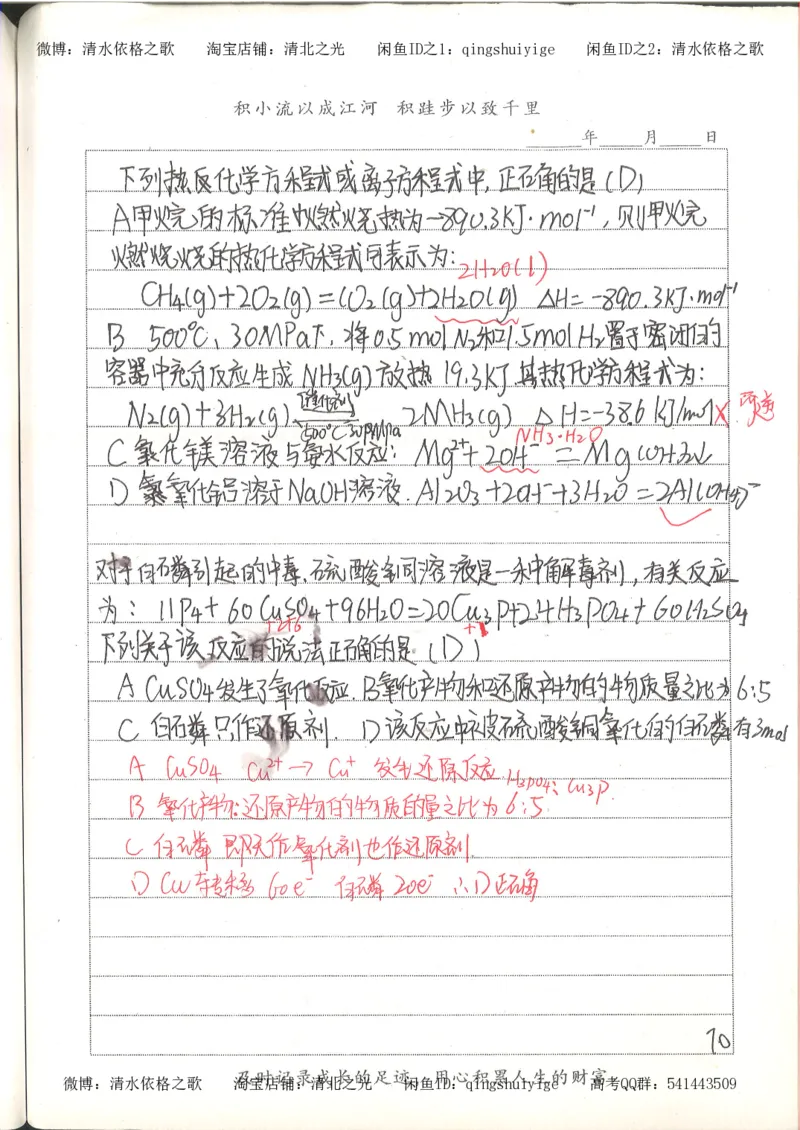 微博：清水依格之歌 淘宝店铺：清北之光 闲鱼ID之1：qingshuiyige 闲鱼ID之2：清水依格之歌
积小流以成江河 积跬步以致千里
年 月 日
下列热反化学方程式或离子方程式中,正确的是(D)
A甲烷的标准燃烧热为-890.3KJ·mol⁻¹,则甲烷
燃烧的热化学方程式可表示为:
2H2O(l)
CH4(g)+2O2(g)=CO2(g)+2H2O(g) ΔH=-890.3KJ·mol⁻¹
B 500℃、30MPa下,将0.5molN2和1.5molH2置于密闭的
容器中充分反应生成NH3(g)放热19.3KJ其热化学方程式为:
N2(g)+3H2(g) 催化剂 500℃30MPa 2NH3(g) ΔH=-38.6KJ/mol × 可逆
NH3·H2O
C氯化镁溶液与氨水反应: Mg²⁺+2OH⁻=Mg(OH)2↓
D氧化铝溶于NaOH溶液.Al2O3+2OH⁻+3H2O=2Al(OH)4⁻
对于白磷引起的中毒,硫酸铜溶液是一种解毒剂,有关反应
为: 11P4+60CuSO4+96H2O=20Cu3P+24H3PO4+60H2SO4
+2+6 +1
下列关于该反应的说法正确的是(D)
A CuSO4发生了氧化反应.B氧化产物和还原产物的物质量之比为6:5
C 白磷只作还原剂. D该反应中被硫酸铜氧化的白磷有3mol
A CuSO4 Cu²⁺→Cu⁺ 发生还原反应
H3PO4: Cu3P.
B 氧化产物:还原产物的物质的量之比为6:5
C 白磷 即作氧化剂也作还原剂.
D Cu转移 60e⁻ 白磷 20e⁻ ∴D正确
70
及时记录成长的足迹 用心积累人生的财富
微博：清水依格之歌 淘宝店铺：清北之光 闲鱼ID：qingshuiyige 高考QQ群：541443509